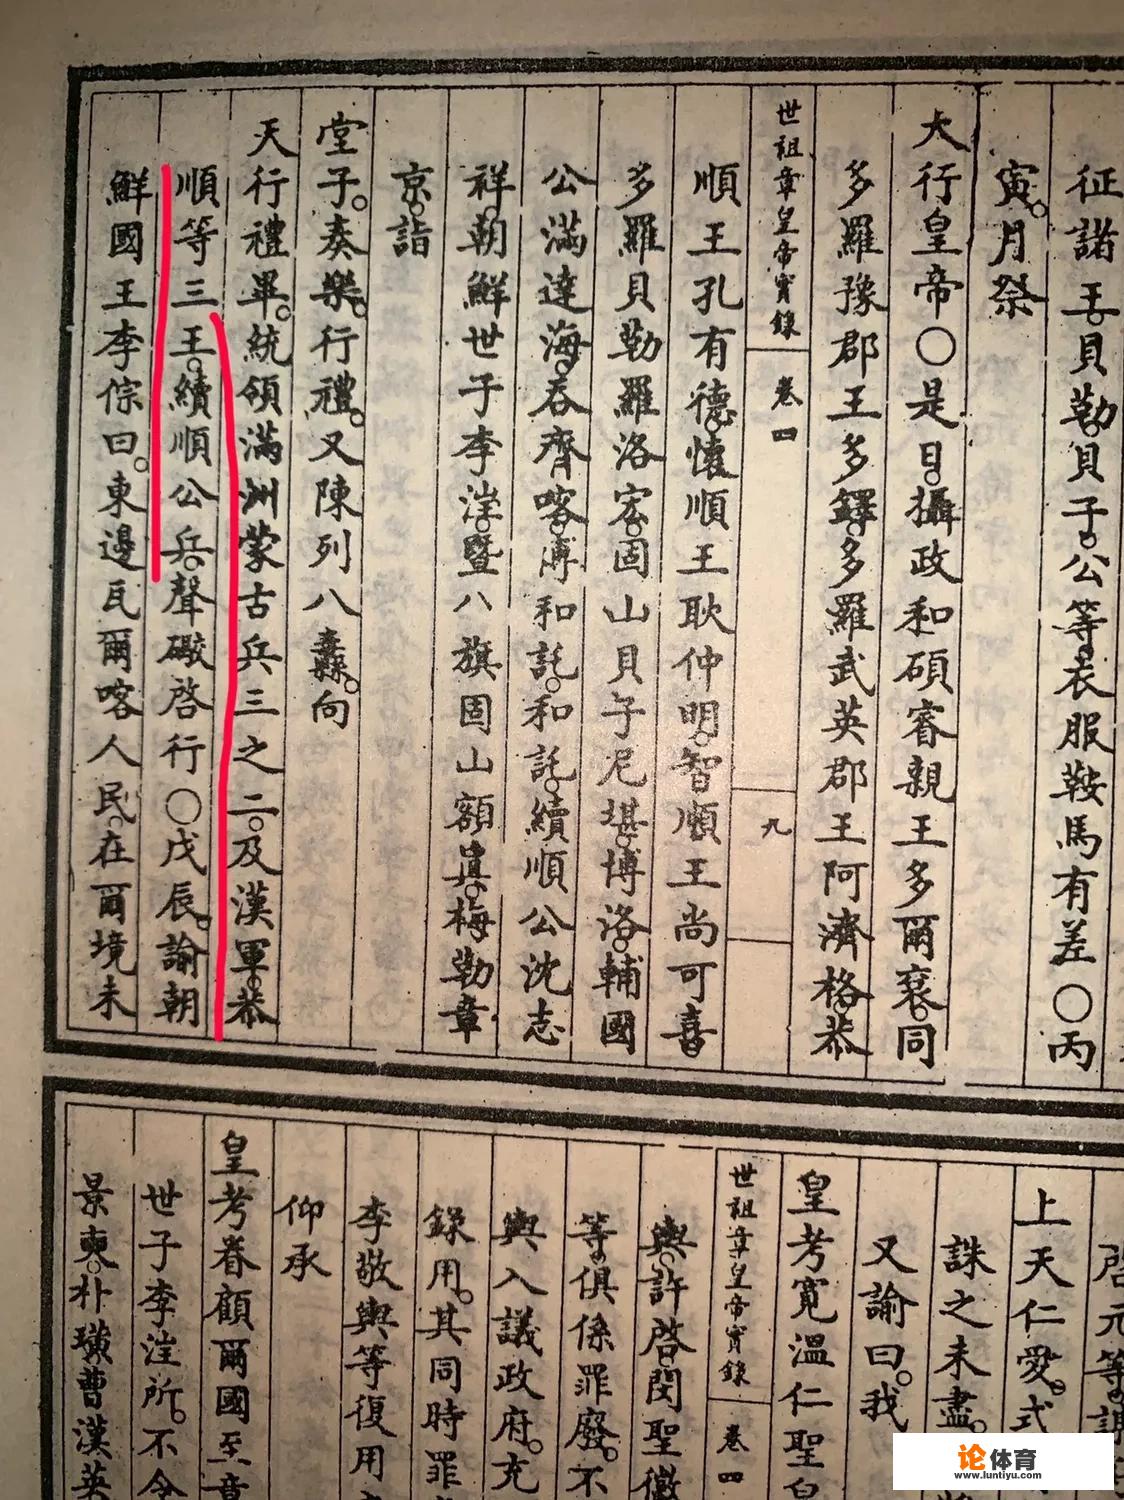 征諸王貝勒貝子公等衣服鞍馬有差〇丙
寅月祭
大行皇帝〇是日攝政和碩睿親王多爾袞同
多羅豫郡王多鐸多羅武英郡王阿濟格恭
世祖章皇帝實錄
卷四
九
順王孔有德懷順王耿仲明智順王尚可喜
多羅貝勒羅洛宏固山貝子尼堪博洛輔國
公滿達海吞齊喀博和託和託續順公沈志
祥朝鮮世子李𣴴暨八旗固山額真梅勒章
京詣
堂子奏樂行禮又陳列八纛向
天行禮畢統領滿洲蒙古兵三之二及漢軍恭
順等三王續順公兵聲礮啓行〇戊辰諭朝
鮮國王李倧曰東邊瓦爾喀人民在爾境未
啓元等謝
上天仁愛式
誅之未盡
又諭曰我
皇考寬溫仁聖皇
世祖章皇帝實錄
卷四
輿許啓閔聖徽
等俱係罪廢不
輿入議政府充
錄用其同時罪
李敬輿等復用
仰承
皇考眷顧爾國至意
世子李𣴴所不令
景奭朴璜曹漢英
论体育
www.luntiyu.com